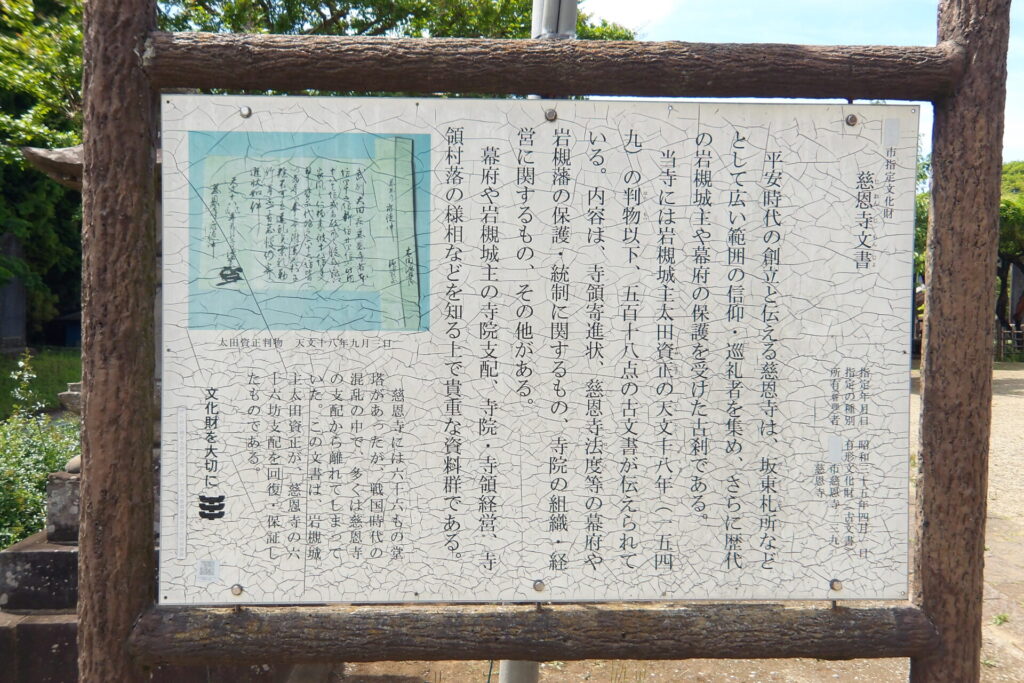 市指定文化財
慈恩寺文書
指定年月日　昭和三十五年四月一日
指定の種別　有形文化財（古文書）
所有者
市慈恩寺一三九
慈恩寺
平安時代の創立と伝える慈恩寺は、坂東札所など
として広い範囲の信仰・巡礼者を集め、さらに歴代
の岩槻城主や幕府の保護を受けた古刹である。
当寺には岩槻城主太田資正の天文十八年（一五四
九）の判物以下、五百十八点の古文書が伝えられて
いる。内容は、寺領寄進状、慈恩寺法度等の幕府や
岩槻藩の保護・統制に関するもの、寺院の組織・経
営に関するもの、その他がある。
幕府や岩槻城主の寺院支配、寺院・寺領経営、寺
領村落の様相などを知る上で貴重な資料群である。
太田資正判物　天文十八年九月三日
慈恩寺には六十六もの堂
塔があったが、戦国時代の
混乱の中で、多くは慈恩寺
の支配から離れてしまって
いた。この文書は、岩槻城
主太田資正が、慈恩寺の六
十六坊支配を回復・保証し
たものである。
文化財を大切に